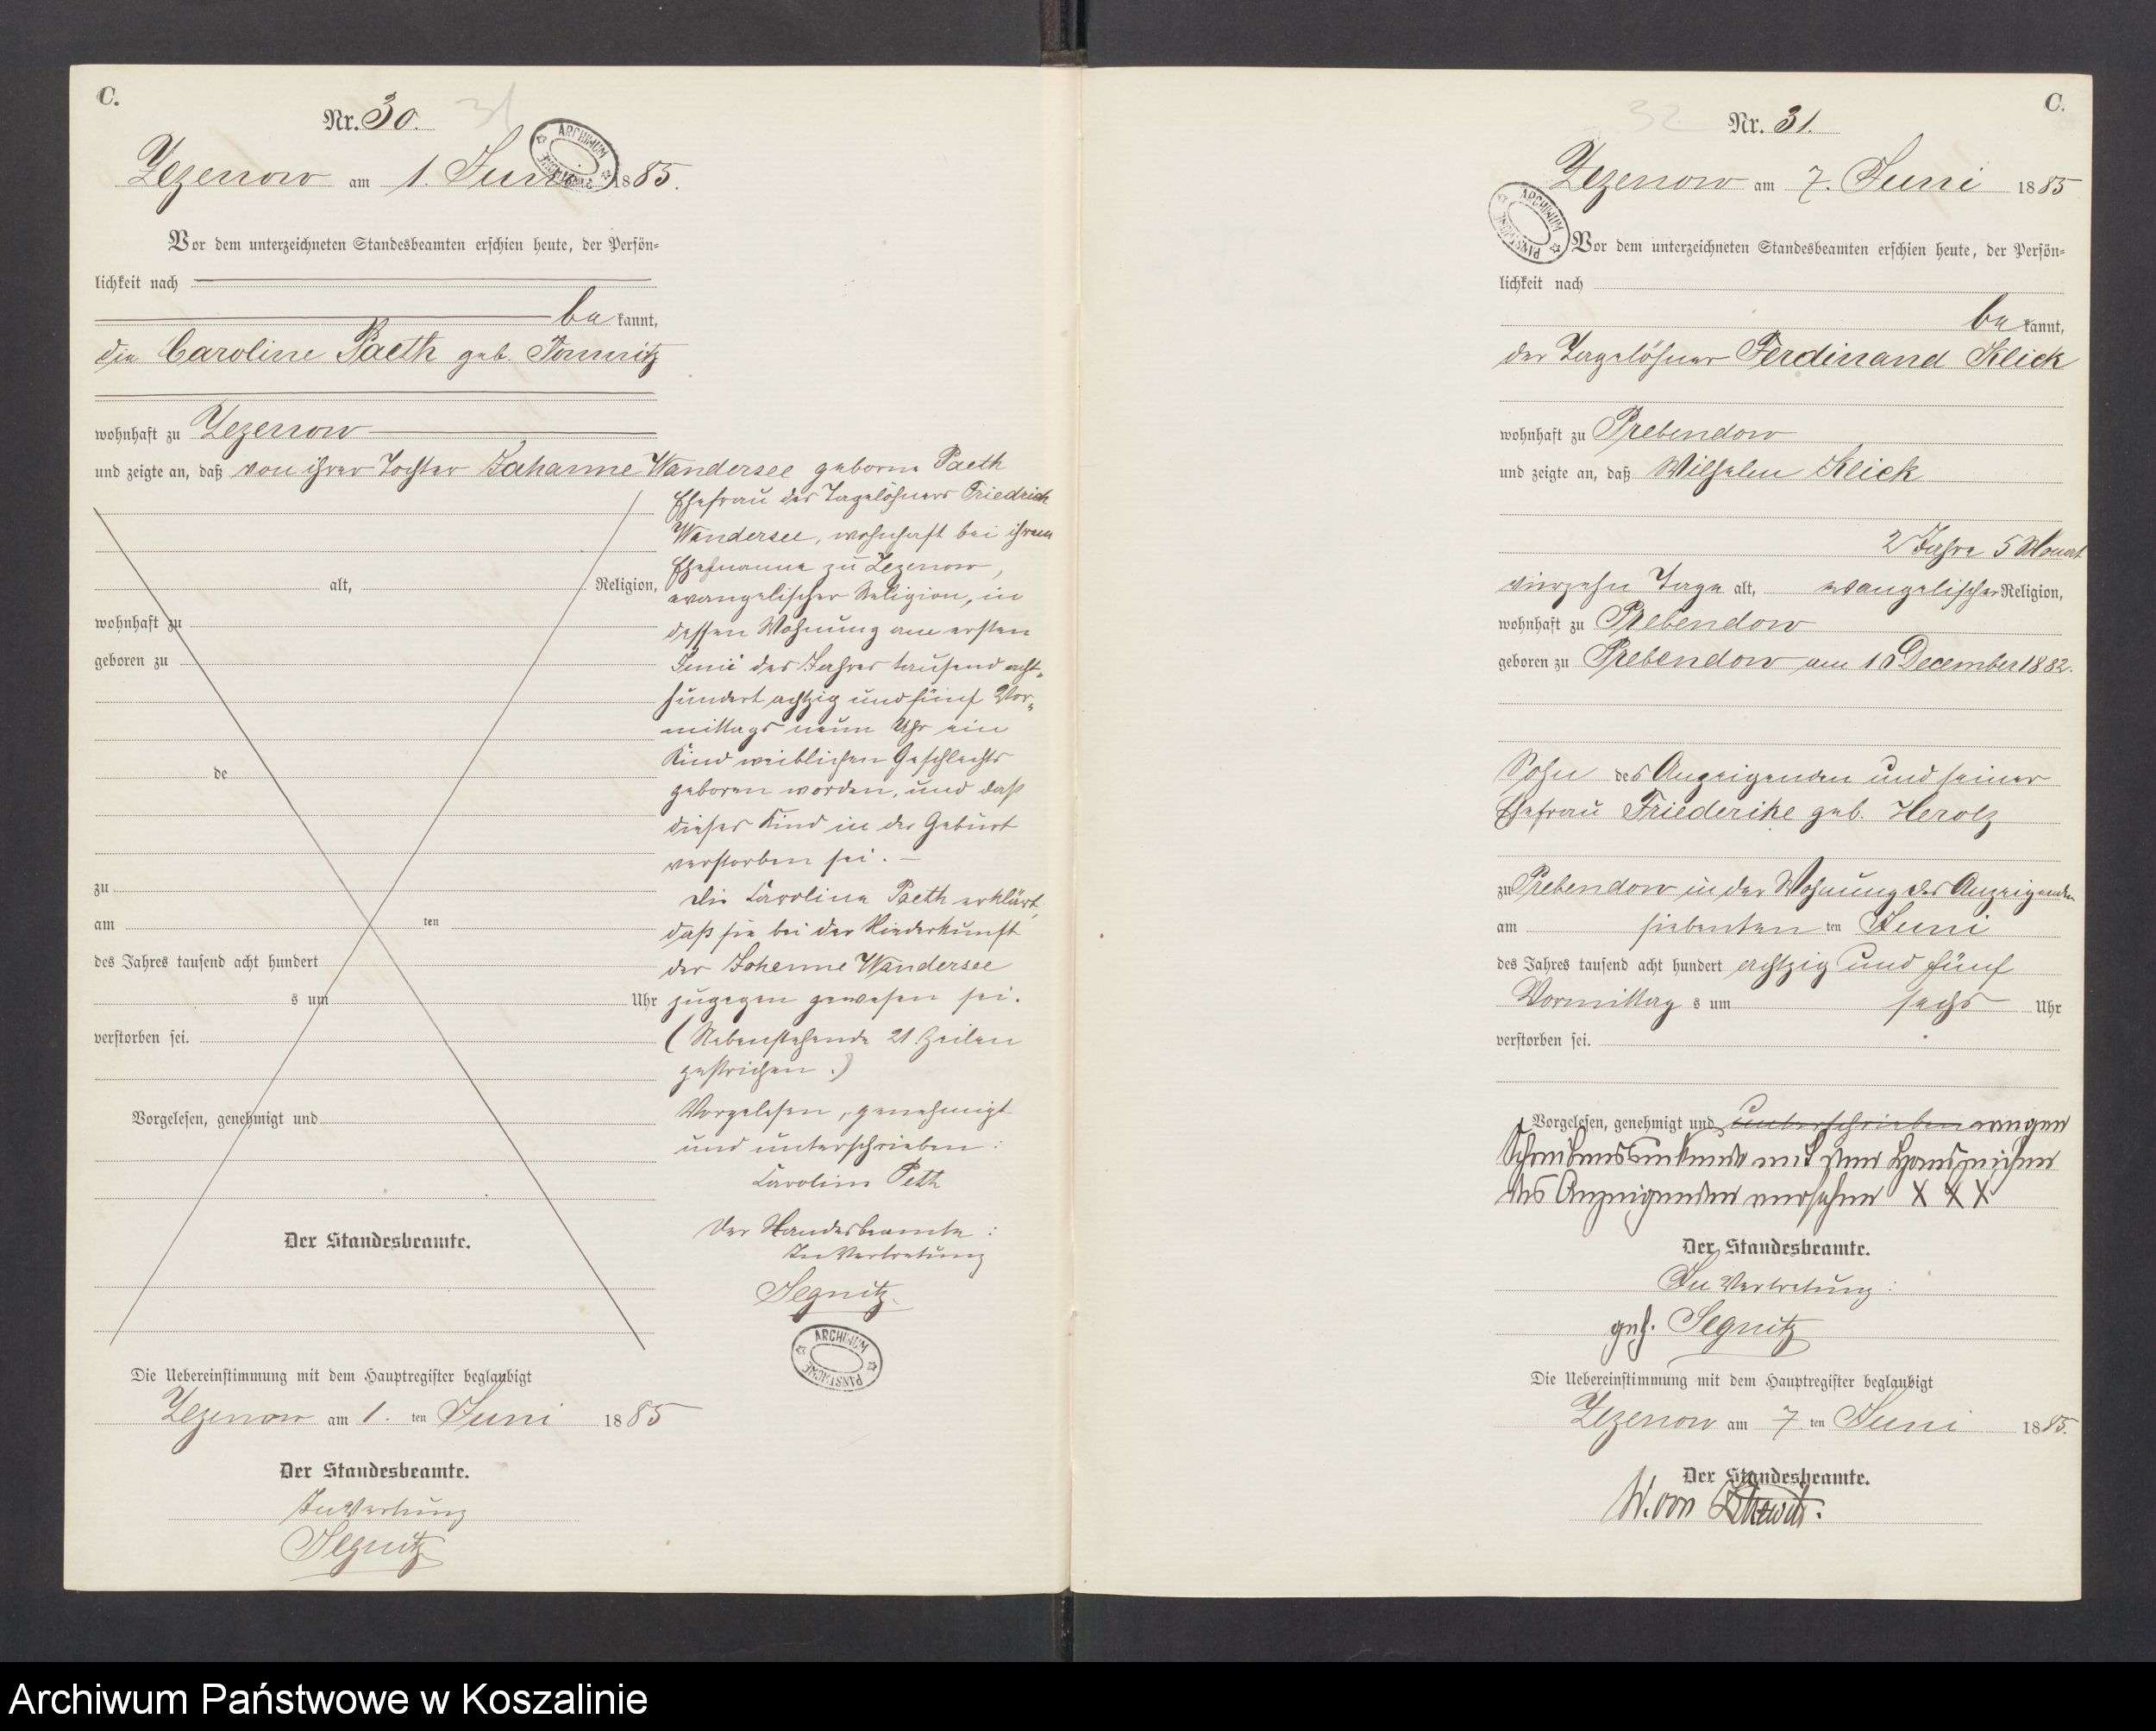 C.
Nr. 30.
31
ARCHIWUM PAŃSTWOWE
Zezenow am 1. Juni 1885.
Vor dem unterzeichneten Standesbeamten erschien heute, der Persön=
lichkeit nach
be kannt,
die Caroline Paeth geb.
wohnhaft zu Zezenow
und zeigte an, daß von ihrer Tochter Johanne Wandersee geborne Paeth
Ehefrau des Tagelöhners Friedrich
Wandersee, wohnhaft bei ihrem
Ehemanne zu Zezenow,
evangelischer Religion, in
dessen Wohnung am ersten
Juni des Jahres tausend acht=
hundert achtzig und fünf Vor=
mittags neun Uhr ein
Kind weiblichen Geschlechts
geboren worden, und daß
dieses Kind in der Geburt
verstorben sei. —
Die Caroline Paeth erklärt,
daß sie bei der Niederkunft
der Johanne Wandersee
zugegen gewesen sei.
(Nebenstehende 21 Zeilen
gestrichen.)
Vorgelesen, genehmigt
und unterschrieben:
Caroline Peth
Der Standesbeamte:
In Vertretung
Segnitz.
ARCHIWUM PAŃSTWOWE
alt, Religion,
wohnhaft zu
geboren zu
de
zu
am ten
des Jahres tausend acht hundert
s um Uhr
verstorben sei.
Vorgelesen, genehmigt und
Der Standesbeamte.
Die Uebereinstimmung mit dem Hauptregister beglaubigt
Zezenow am 1. ten Juni 1885
Der Standesbeamte.
In Vertretung
Segnitz
C.
32
Nr. 31.
Zezenow am 7. Juni 1885
ARCHIWUM PAŃSTWOWE
Vor dem unterzeichneten Standesbeamten erschien heute, der Persön=
lichkeit nach
be kannt,
der Tagelöhner Ferdinand Klick
wohnhaft zu Prebendow
und zeigte an, daß Wilhelm Klick
2 Jahre 5 Monat
vierzehn Tage alt, evangelischer Religion,
wohnhaft zu Prebendow
geboren zu Prebendow am December 1882.
Sohn des Anzeigenden und seiner
Ehefrau Friederike geb. Herolz
zu Prebendow in der Wohnung des Anzeigenden
am siebenten ten Juni
des Jahres tausend acht hundert achtzig und fünf
Vormittag s um sechs Uhr
verstorben sei.
Vorgelesen, genehmigt und unterschrieben wegen
Schreibensunkunde mit dem Handzeichen
des Anzeigenden versehen X X X
Der Standesbeamte.
In Vertretung:
gez. Segnitz
Die Uebereinstimmung mit dem Hauptregister beglaubigt
Zezenow am 7 ten Juni 1885.
Der Standesbeamte.
W. von
Archiwum Państwowe w Koszalinie